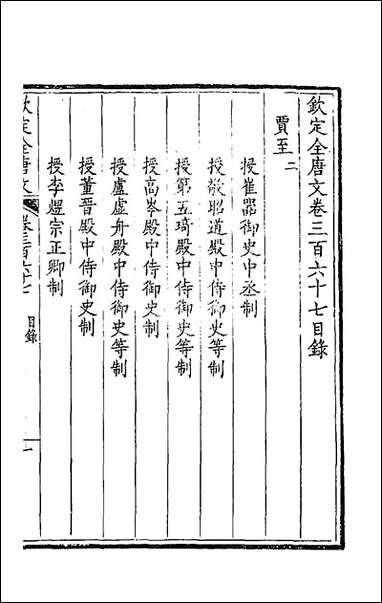 欽定全唐文卷三百六十七目錄
賈至二
授崔器御史中丞制
授敬昭道殿中侍御史制
授第五琦殿中侍御史等制
授高岑殿中侍御史制
授盧虛舟殿中侍御史等制
授董晉殿中侍御史制
授李煜宗正卿制
欽定全唐文 卷三百六十七 目錄 一